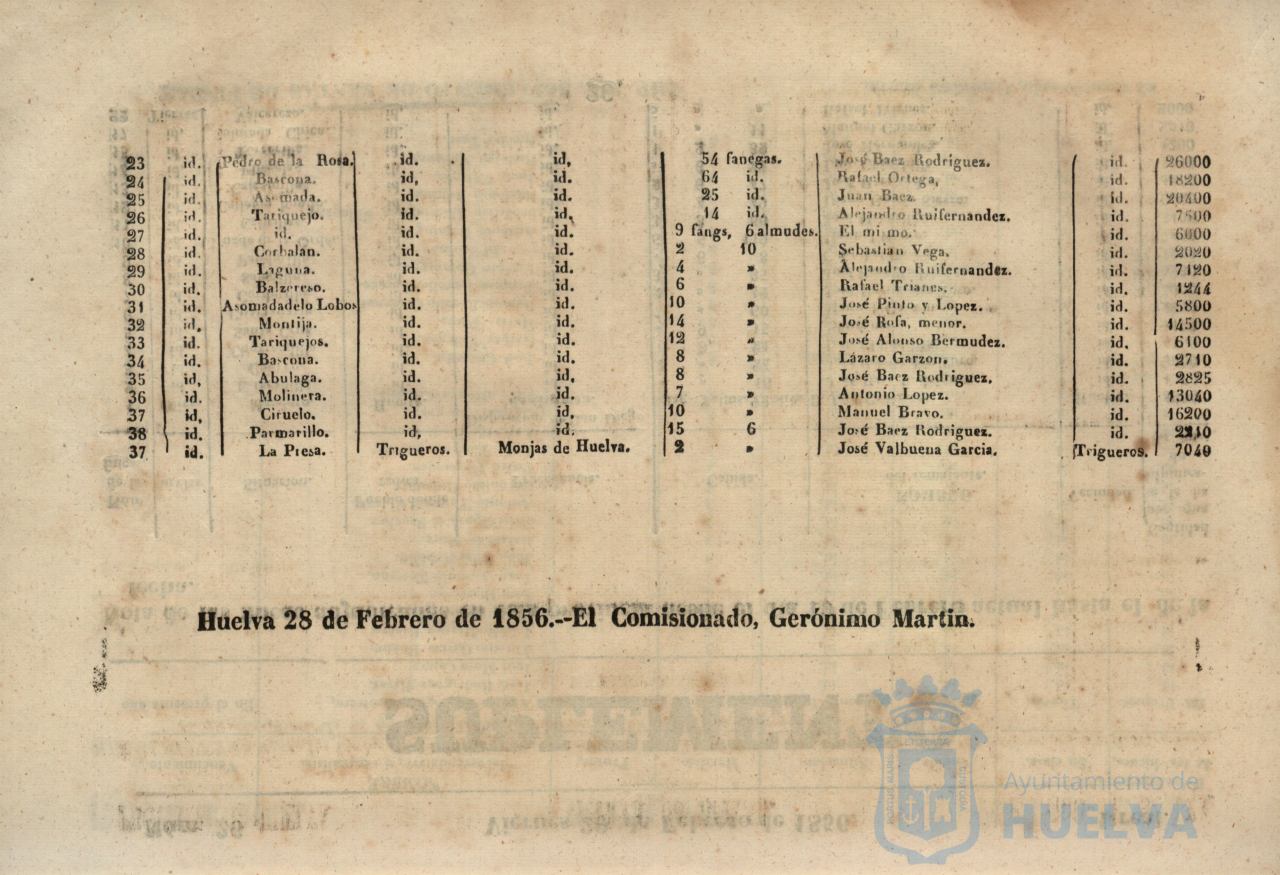 23 id. Pedro de la Rosa. id. id, 54 fanegas. José Baez Rodriguez. id. 26000
24 id. Bascona. id, id. 64 id. Rafael Ortega, id. 18200
25 id. Asomada. id. id. 25 id. Juan Baez. id. 20400
26 id. Tariquejo. id. id, 14 id. Alejandro Ruifernandez. id. 7500
27 id. id. id. id. 9 fangs, 6 almudes. El mi mo. id. 6000
28 id. Corbalan. id. id. 2 10 Sebastian Vega. id. 2020
29 id. Laguna. id. id. 4 » Alejandro Ruifernandez. id. 7120
30 id. Balzereso. id. id. 6 » Rafael Trianes. id. 1244
31 id. Asomadadelo Lobos id. id. 10 » José Pinto y Lopez. id. 5800
32 id. Montija. id. id. 14 » José Rofa, menor. id. 14500
33 id. Tariquejos. id. id. 12 » José Alonso Bermudez. id. 6100
34 id. Bascona. id. id. 8 » Lázaro Garzon. id. 2710
35 id, Abulaga. id. id, 8 » José Baez Rodriguez, id. 2825
36 id. Molinera. id. id. 7 » Antonio Lopez. id. 13040
37 id, Ciruelo. id. id, 10 » Manuel Bravo. id. 16200
38 id. Parmarillo. id, id. 15 6 José Baez Rodriguez. id.
37 id. La Piesa. Trigueros. Monjas de Huelva. 2 » José Valbuena Garcia. Trigueros. 7040
Huelva 28 de Febrero de 1856.--El Comisionado, Gerónimo Martin.
Ayuntamiento de
HUELVA